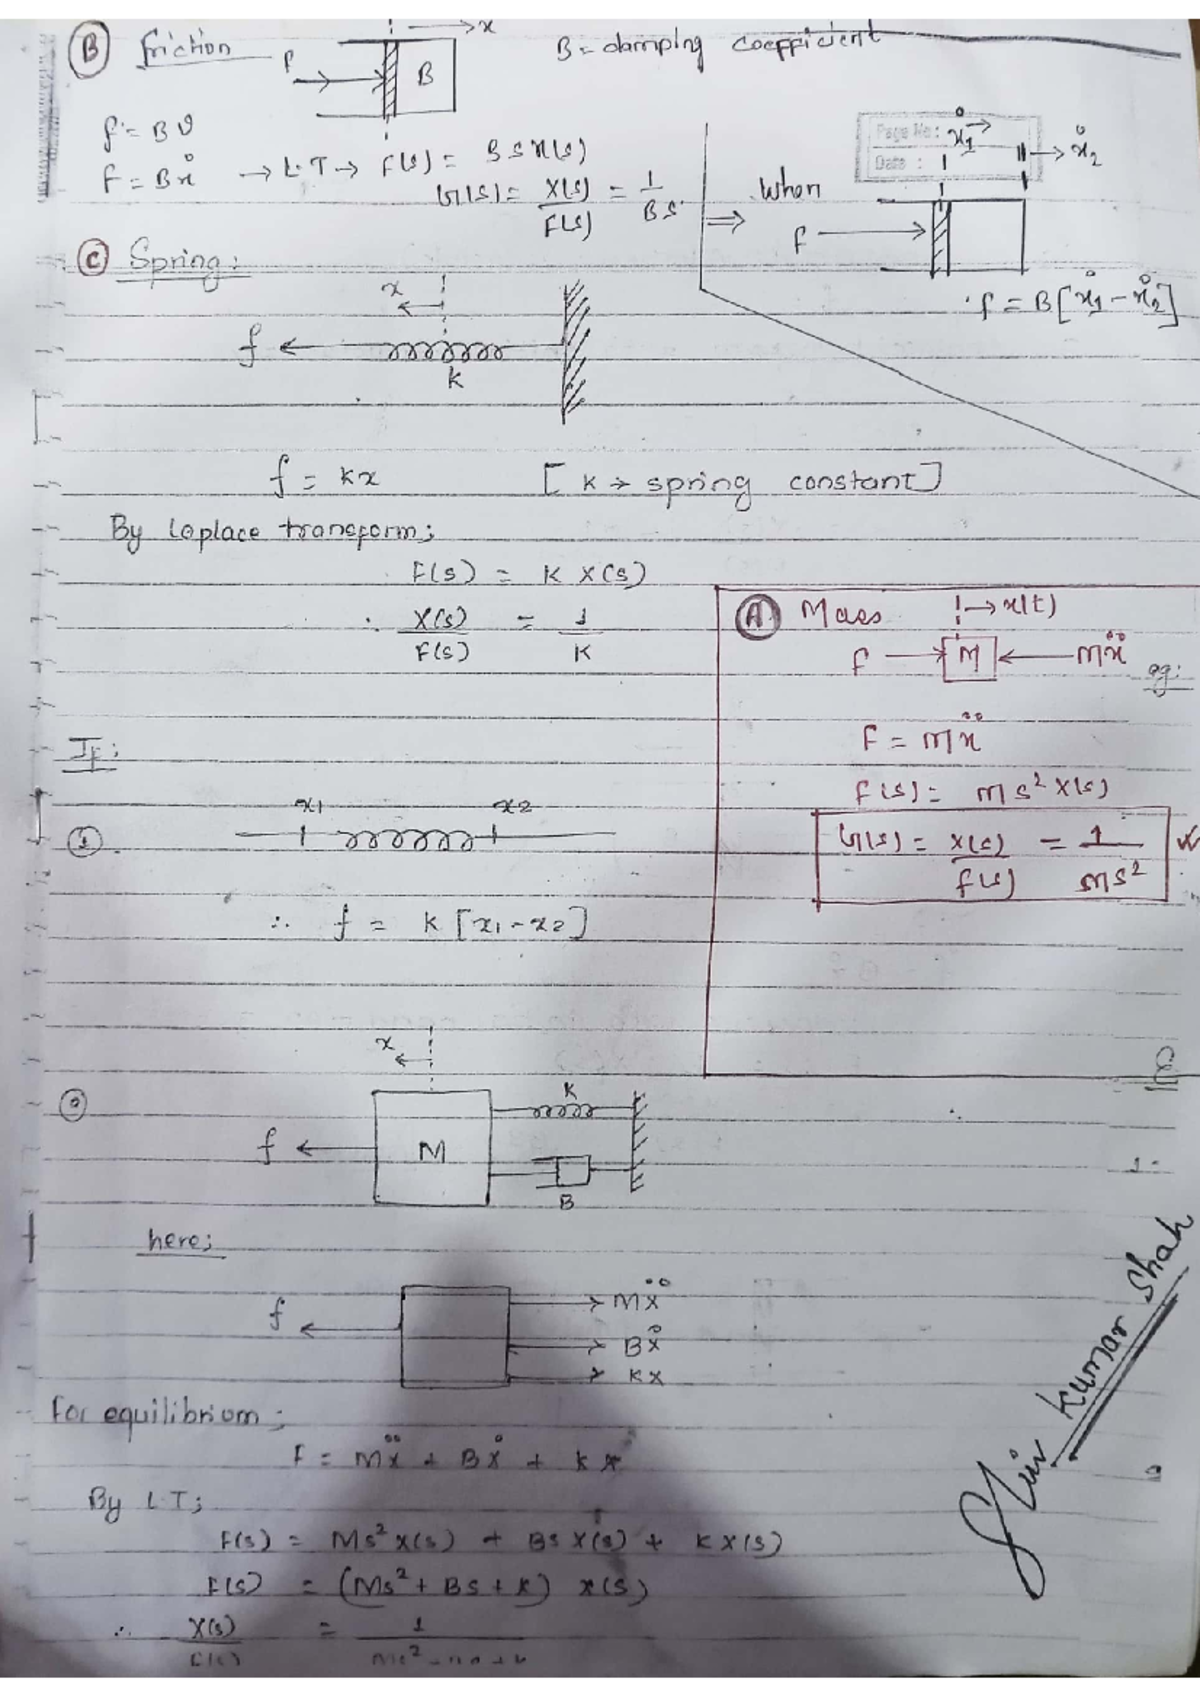 Ⓑ friction
x
B
B = damping coefficient
f = Bϑ
F = Bẋ → L.T → F(s) = BSX(s)
G(s) = X(s)/F(s) = 1/BS
⇒ When
Page No:
Date :
ẋ1 → → ẋ2
f
f = B[ẋ1 - ẋ2]
Ⓒ Spring:
x
f
K
f = kx [K → spring constant]
By Laplace transform;
F(s) = K X(s)
∴ X(s)/F(s) = 1/K
Ⓐ Mass → x(t)
f → M ← Mẍ
eg:
F = Mẍ
F(s) = MS² X(s)
G(s) = X(s)/F(s) = 1/MS²
If:
① x1 x2
∴ f = K [x1 - x2]
x
② f M K
B
here;
f Mẍ
Bẋ
Kx
for equilibrium;
F = Mẍ + Bẋ + Kx
By L.T;
F(s) = Ms² X(s) + Bs X(s) + K X(s)
F(s) = (Ms² + Bs + K) X(s)
∴ X(s)/F(s) = 1/Ms² + Bs + K
Shiv Kumar Shah